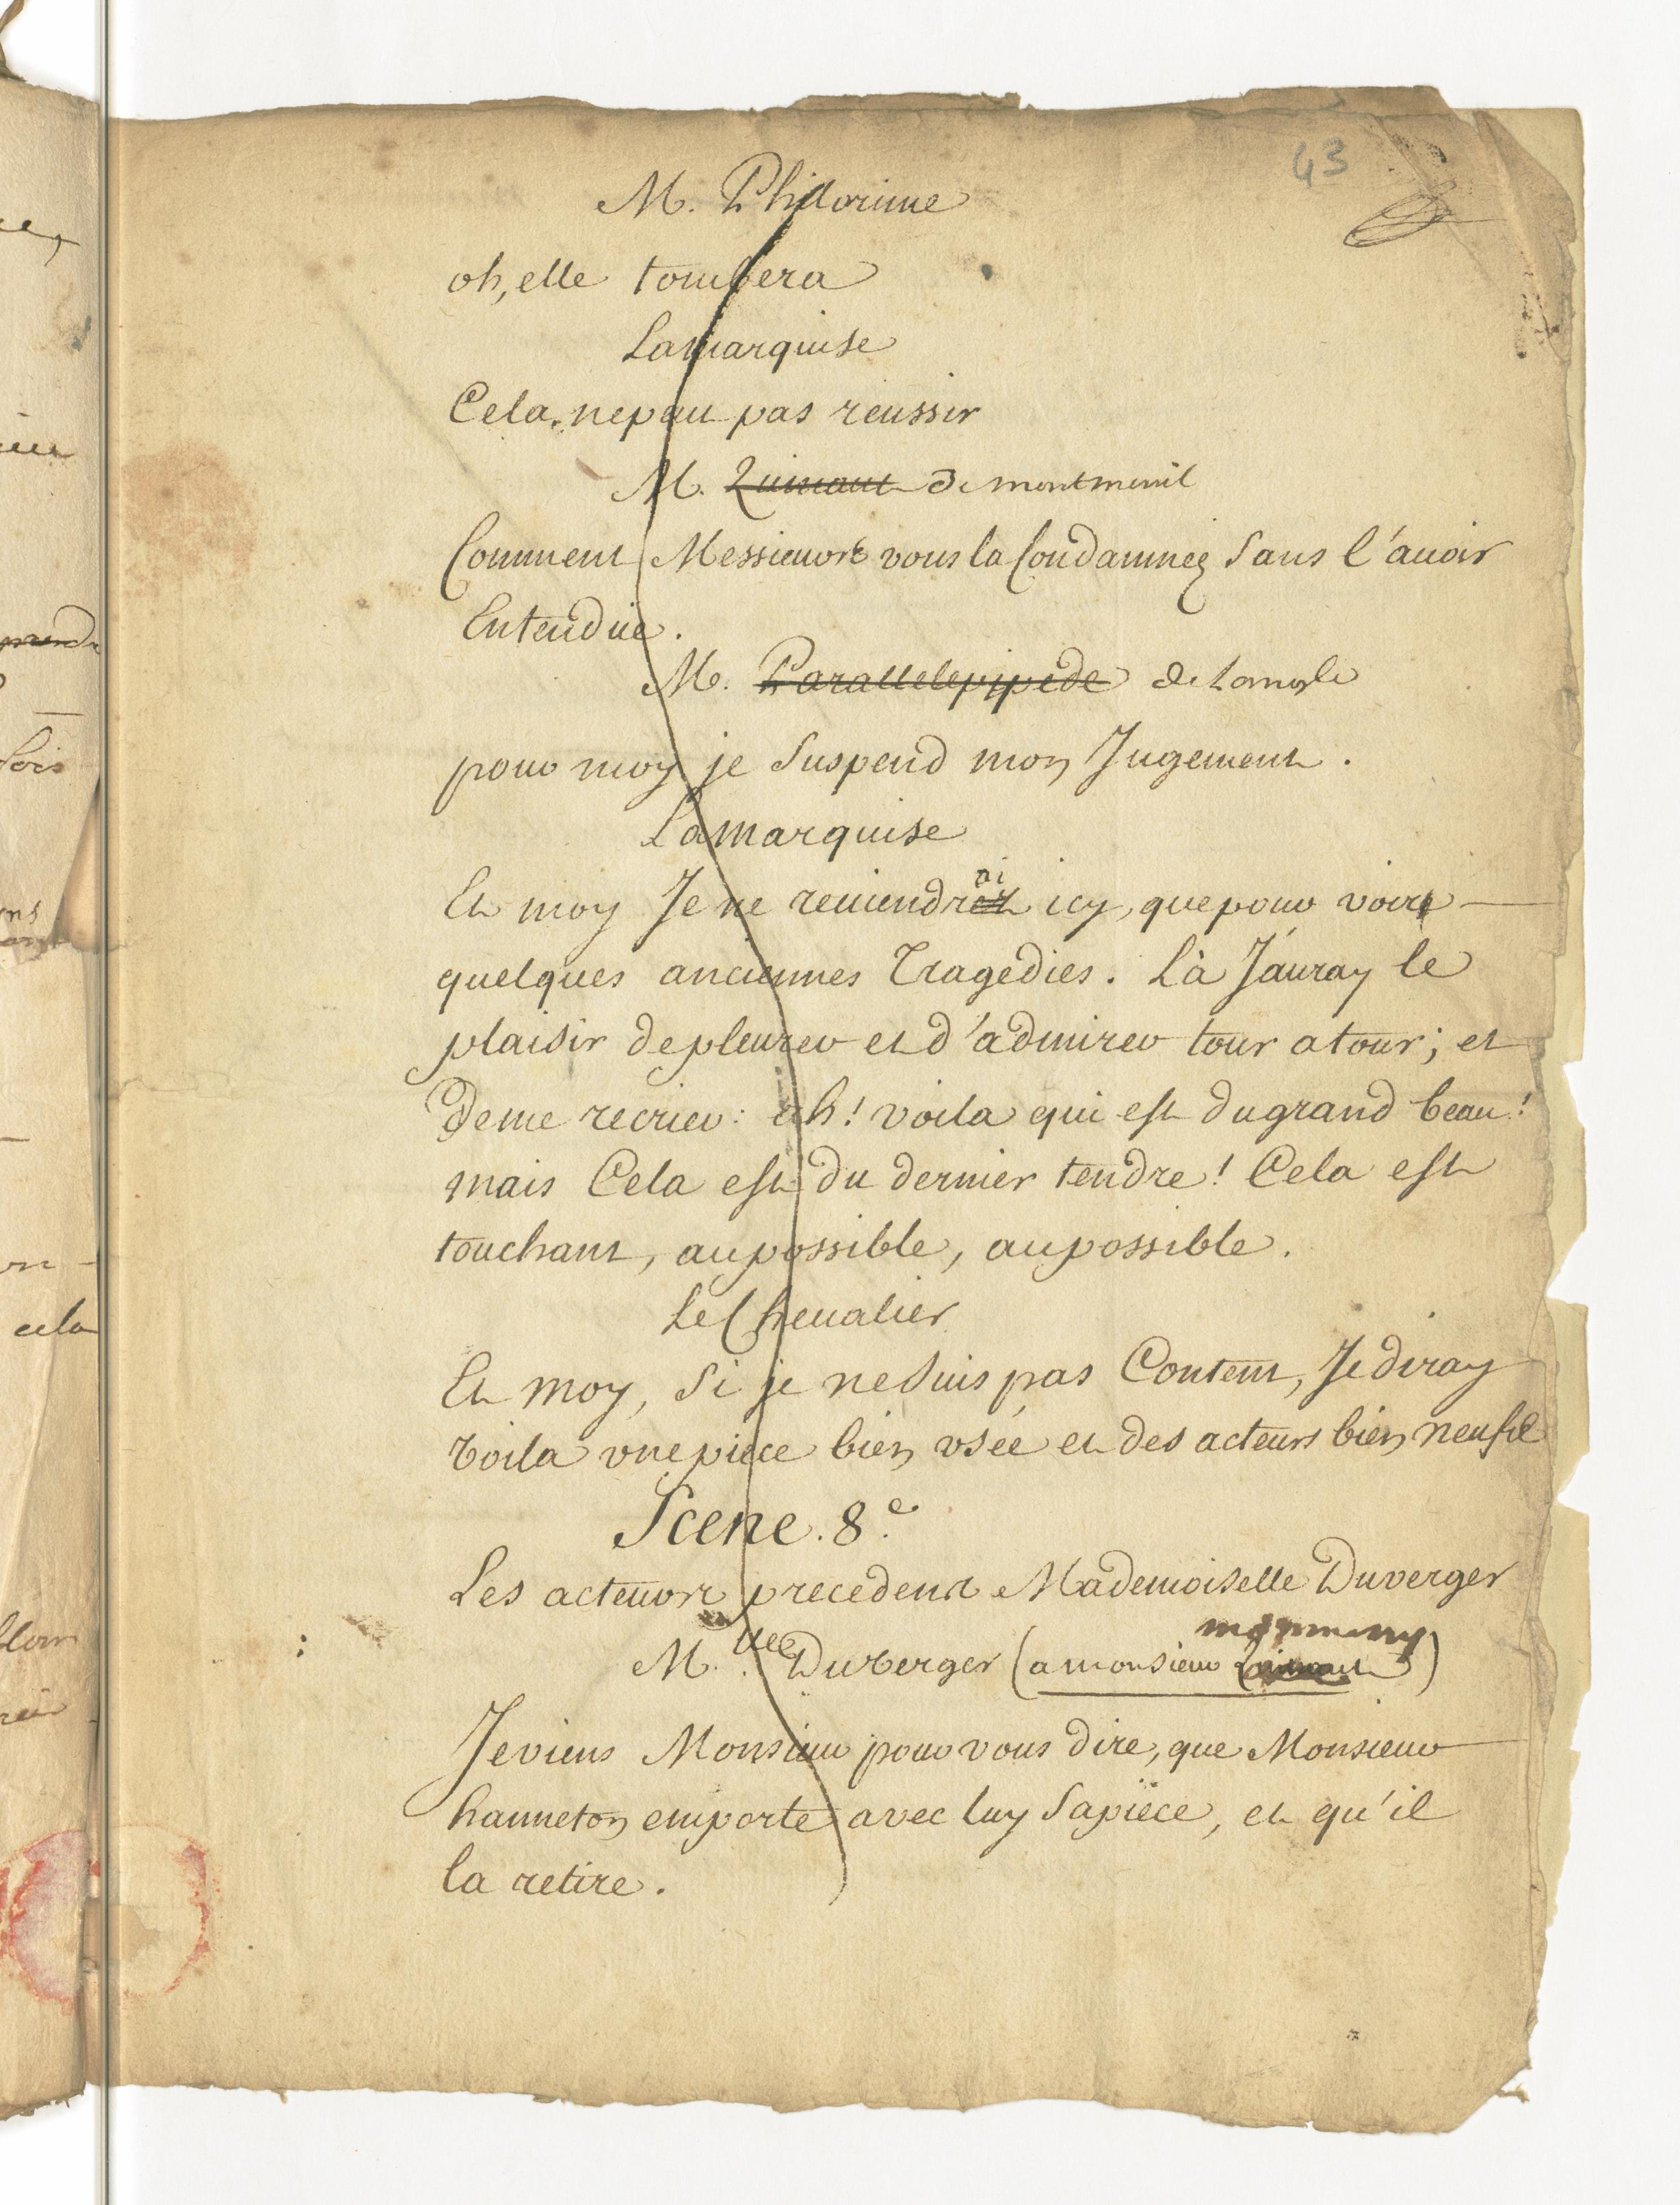 43
M. Philorime
oh, elle tombera
Lamarquise
Cela. nepeut pas reussir
M. de montmenil
Comment Messieurs vous la Condamnez Sans l'auoir
Entendüe.
M. Parallelepipede
pour moy je Suspend mon Jugement.
Lamarquise
Et moy Je ne reuiendrai icy, que pour voire
quelques anciennes Tragedies. Là J'auray le
plaisir depleurer et d'admirer tour atour; et
Deme recrier: ah! voila qui est dugrand beau!
mais Cela est du dernier tendre! Cela est
touchant, aupossible, aupossible.
Le Cheualier
Et moy, Si je neSuis pas Content, Je diray
Voila vnepiece bien vsée et des acteurs bien neufs
Scene. 8.e
Les acteurs precedent Mademoiselle Duverger
M.lle Duverger (amonsieur )
Jeviens Monsieur pour vous dire, que Monsieur
hanneton emporte avec luy Sapiëce, et qu'il
la retire.
cela